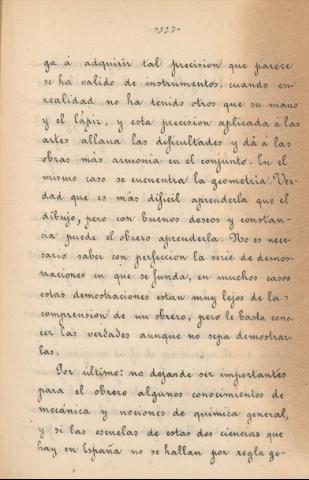 -337-
ga á adquirir tal precision que parece
se ha valido de instrumentos, cuando en
realidad no ha tenido otros que su mano
y el lápiz, y esta precision aplicada á las
artes allana las dificultades y dá á las
obras más armonia en el conjunto. En el
mismo caso se encuentra la geometria. Ver-
dad que es más dificil aprenderla que el
dibujo, pero con buenos deseos y constan-
cia puede el obrero aprenderla. No es nece-
sario saber con perfeccion la série de demos-
traciones en que se funda, en muchos casos
estas demostraciones estan muy lejos de la
comprension de un obrero, pero le basta cono-
cer las verdades aunque no sepa demostrar-
las.
Por último: no dejande ser importantes
para el obrero algunos conocimientos de
mecánica y nociones de quimica general,
y si las escuelas de estas dos ciencias que
hay en España no se hallan por regla ge-